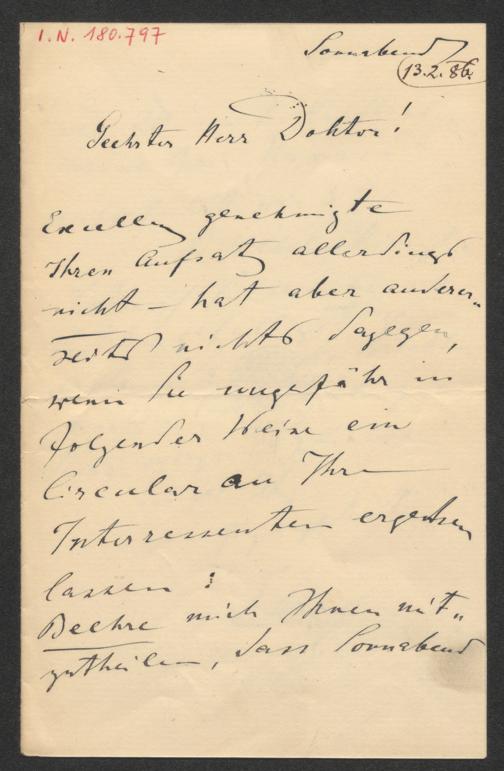 I.N. 180.797
Sonnabend
13.2.86.
Geehrter Herr Doktor!
Excellenz genehmigte
Ihren Aufsatz allerdings
nicht – hat aber anderer„
seits nichts dagegen,
wenn Sie ungefähr in
folgender Weise ein
Circular an Ihre
Interressenten ergehen
lassen :
Beehre mich Ihnen mit„
zutheilen, dass Sonnabend